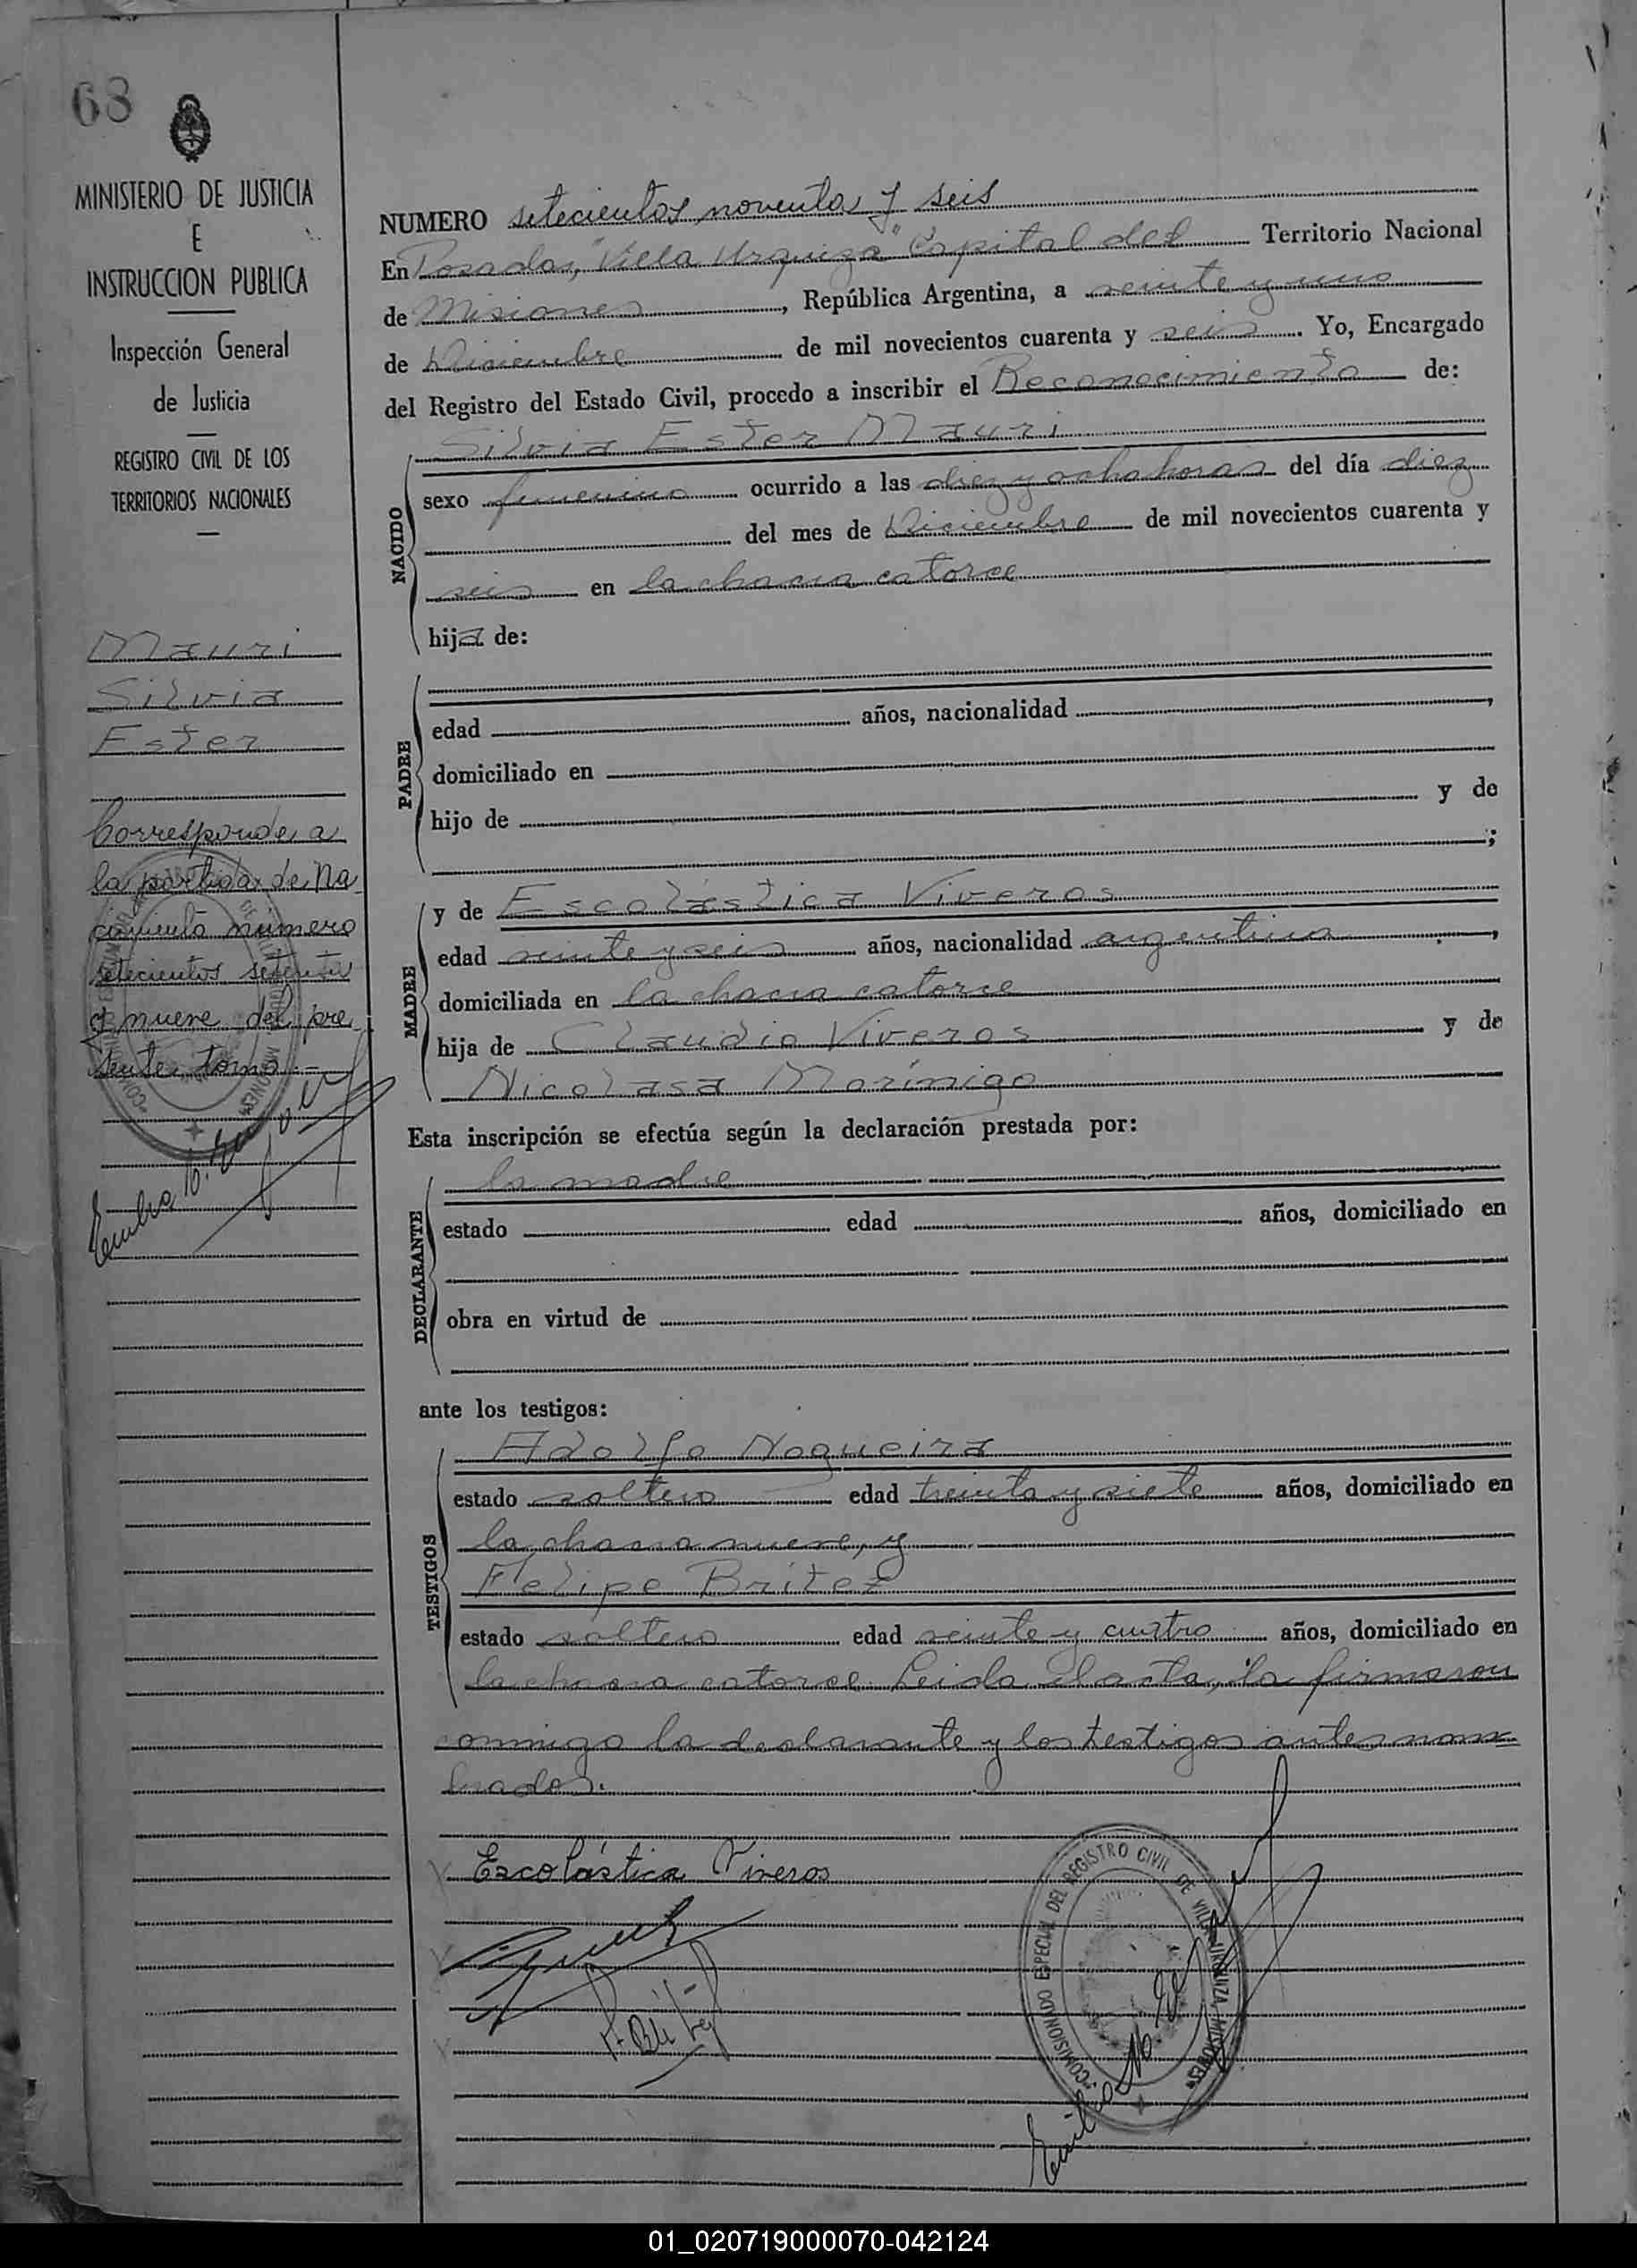 68
MINISTERIO DE JUSTICIA
E
INSTRUCCION PUBLICA
Inspección General
de Justicia
REGISTRO CIVIL DE LOS
TERRITORIOS NACIONALES
Mauri
Silvia
Ester
Corresponde a
la partida de Na
cimiento número
setecientos setenta
y nueve del pre
sente tomo.-
NUMERO setecientos noventa y seis
En Posadas, "Villa Urquiza" Capital del Territorio Nacional
de Misiones, República Argentina, a veinte y uno
de Diciembre de mil novecientos cuarenta y seis. Yo, Encargado
del Registro del Estado Civil, procedo a inscribir el Reconocimiento de:
Silvia Ester Mauri
NACIDO
sexo femenino ocurrido a las diez y ocho horas del día diez
del mes de Diciembre de mil novecientos cuarenta y
seis en la chacra catorce
hija de:
PADRE
edad años, nacionalidad ,
domiciliado en
hijo de y de
;
MADRE
y de Escolástica Viveros
edad veinte y seis años, nacionalidad argentina,
domiciliada en la chacra catorce
hija de Claudio Viveros y de
Nicolasa Morínigo
Esta inscripción se efectúa según la declaración prestada por:
DECLARANTE
la madre
estado edad años, domiciliado en
obra en virtud de
ante los testigos:
TESTIGOS
Adolfo Nogueira
estado soltero edad treinta y siete años, domiciliado en
la chacra nueve, y
Felipe Britez
estado soltero edad veinte y cuatro años, domiciliado en
la chacra catorce. Leida el acta, la firmaron
conmigo la declarante y los testigos antes nom=
brados.
Escolástica Viveros
F. Britez
COMISIONADO ESPECIAL DEL REGISTRO CIVIL DE VILLA URQUIZA MISIONES
01_020719000070-042124